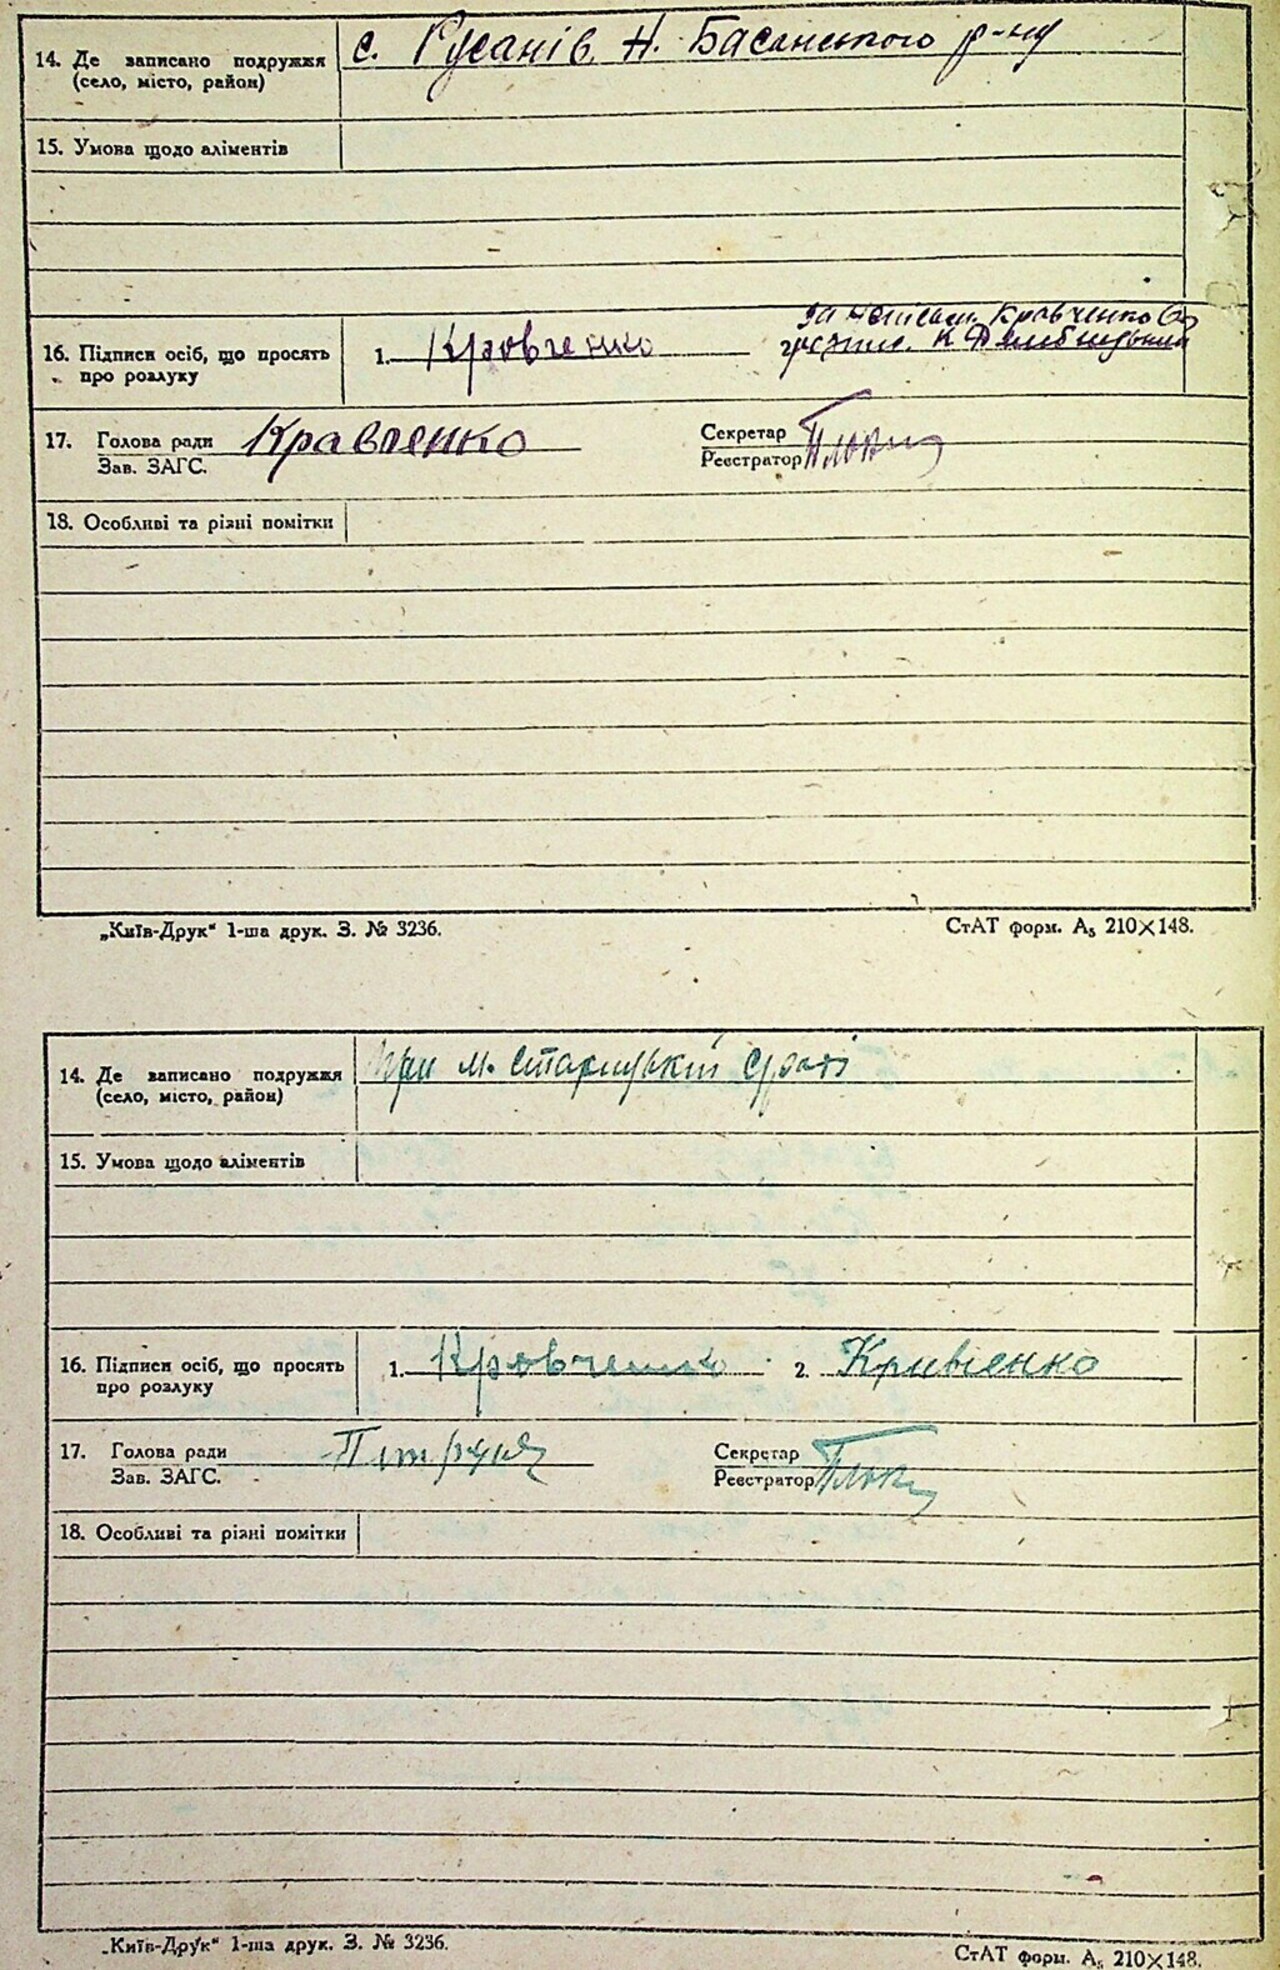 14. Де записано подружжя
(село, місто, район)
с. Русанів Н. Басанського р-ну
15. Умова щодо аліментів
16. Підписи осіб, що просять
про розлуку
1. Кровченко
за Кравченко
17. Голова ради
Зав. ЗАГС.
Кравченко
Секретар
Реєстратор
18. Особливі та різні помітки
„Київ-Друк“ 1-ша друк. З. № 3236.
СтАТ форм. А₅ 210×148.
14. Де записано подружжя
(село, місто, район)
при м. Старицькій с/раді
15. Умова щодо аліментів
16. Підписи осіб, що просять
про розлуку
1. Кровченко
2. Кривченко
17. Голова ради
Зав. ЗАГС.
Секретар
Реєстратор
18. Особливі та різні помітки
„Київ-Друк“ 1-ша друк. З. № 3236.
СтАТ форм. А₅ 210×148.